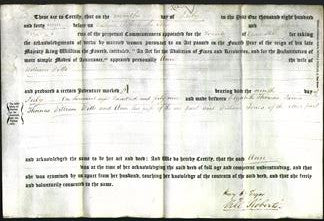 These are to Certify, that on the ninth day of July in the Year One thousand eight hundred
and forty before
of the perpetual Commissioners appointed for the County of for taking
the acknowledgments of deeds by married women pursuant to an Act passed in the Fourth Year of the reign of his late
Majesty King William the Fourth, entitled, "An Act for the Abolition of Fines and Recoveries, and for the Substitution of
more Simple Modes of Assurance," appeared personally Ann the wife of
William
and produced a certain Indenture marked A bearing date the ninth day
July One thousand eight hundred and and made between Elizabeth Thomas
Thomas William and Ann his wife of the one part and William of the other part
and acknowledged the same to be her act and deed: And We do hereby Certify, that the said Ann
was at the time of her acknowledging the said deed of full age and competent understanding, and that
she was examined by us apart from her husband, touching her knowledge of the contents of the said deed, and that she freely and
voluntarily consented to the same.
Roberts